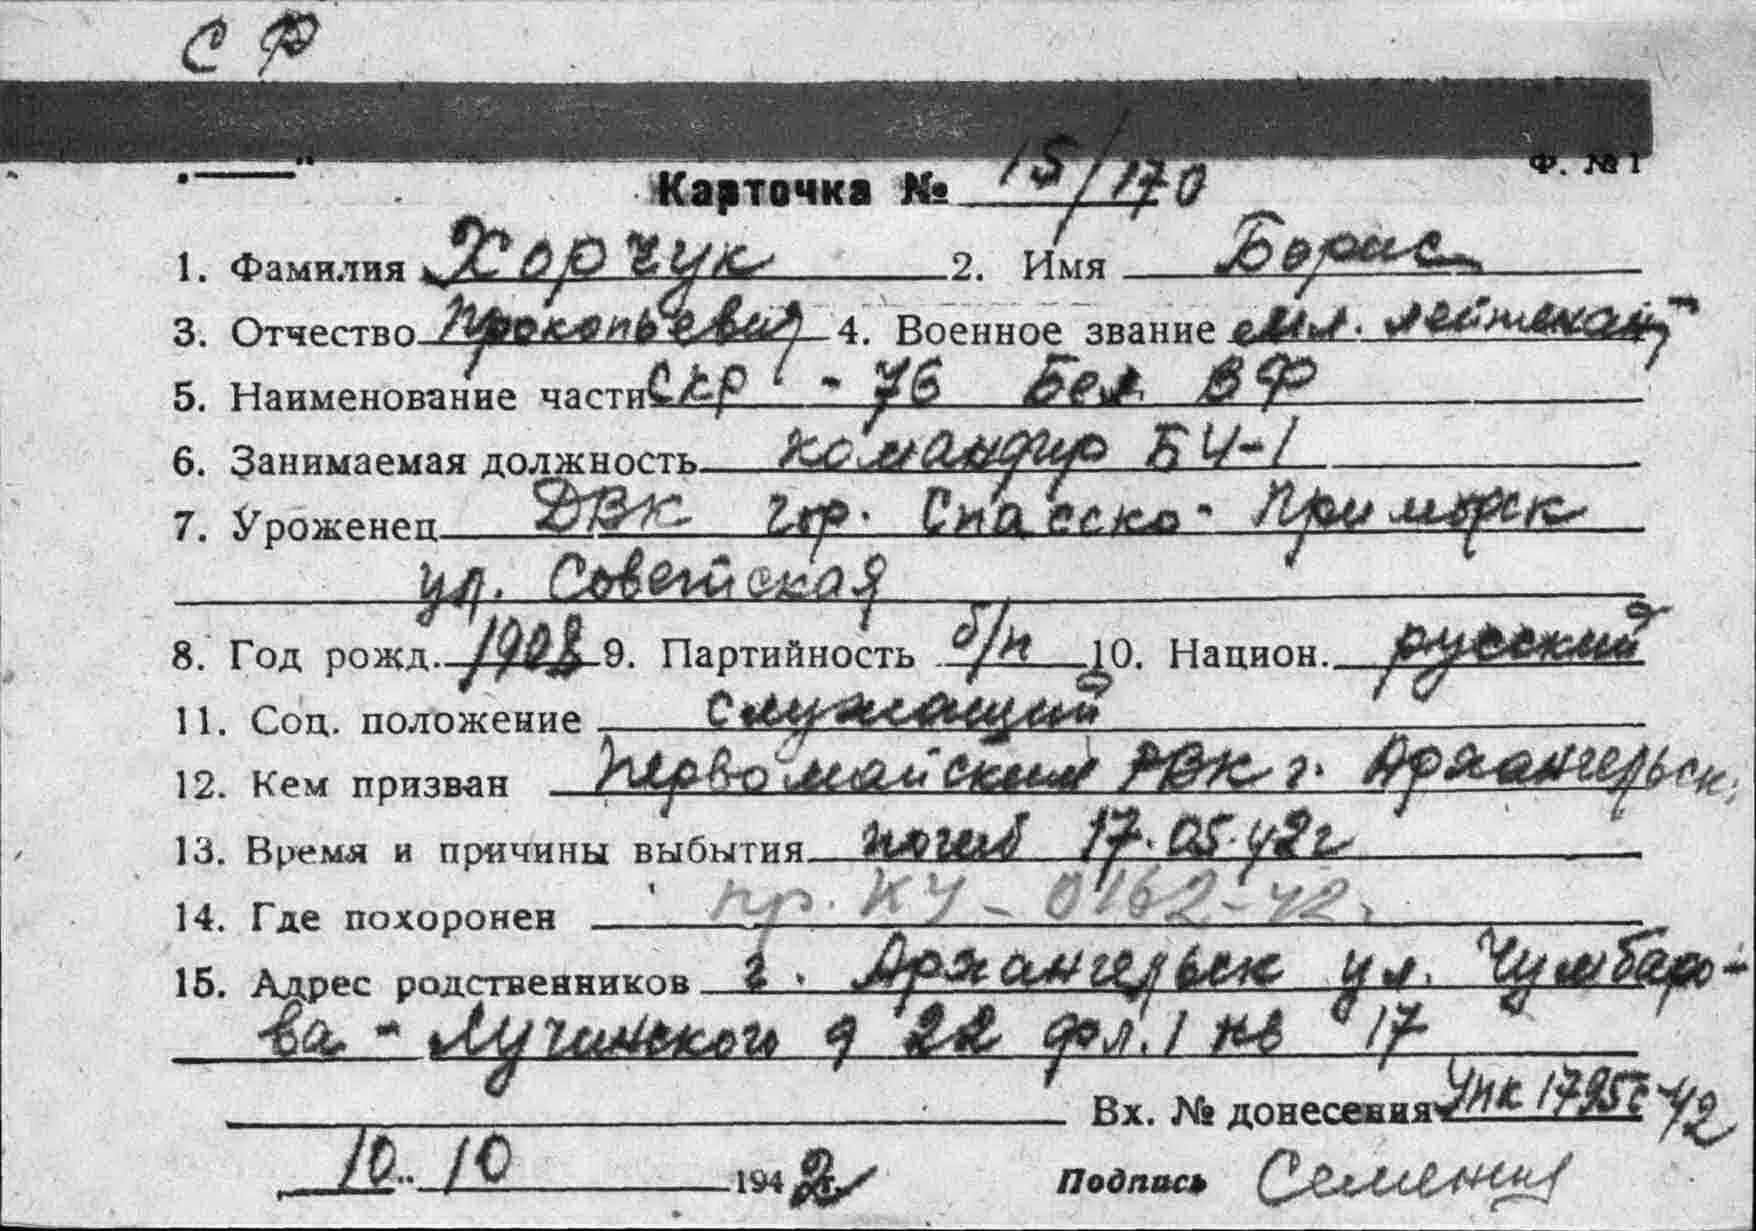 СФ
Ф. № 1
Карточка № 15/170
1. Фамилия Хорчук 2. Имя Борис
3. Отчество Прокопьевич 4. Военное звание мл. лейтенант
5. Наименование части СКР - 76 Бел. ВФ
6. Занимаемая должность командир БЧ-1
7. Уроженец ДВК гор. Спасско- Приморск
ул. Советская
8. Год рожд. 1908 9. Партийность б/п 10. Национ. русский
11. Соц. положение служащий
12. Кем призван Первомайским РВК г. Архангельск
13. Время и причины выбытия погиб 17.05.42г
14. Где похоронен пр. КУ - 0162-42.
15. Адрес родственников г. Архангельск ул. Чумбаро-
ва - Лучинского д 22 фл. 1 кв 17
Вх. № донесения Упк 1795с-42
10. 10 1942г Подпись